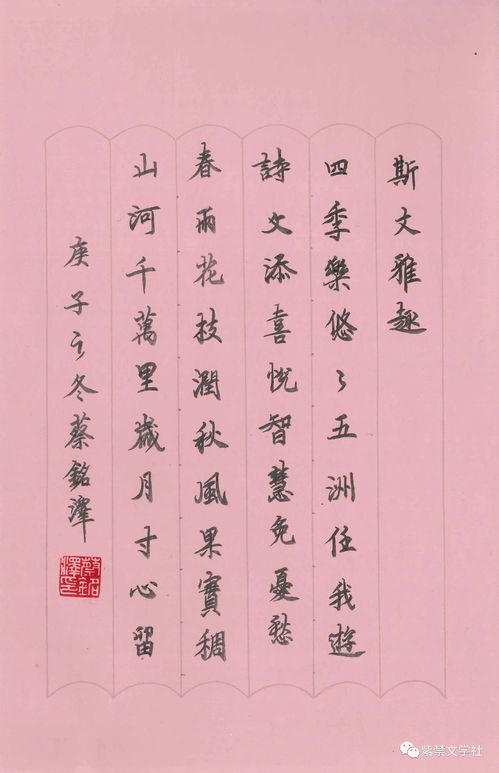 斯文雅趣
四季樂悠々五洲任我遊
詩文添喜悦智慧免憂愁
春雨花枝潤秋風果實稠
山河千萬里歲月寸心留
庚子之冬蔡銘澤
蔡銘澤印
紫禁文学社